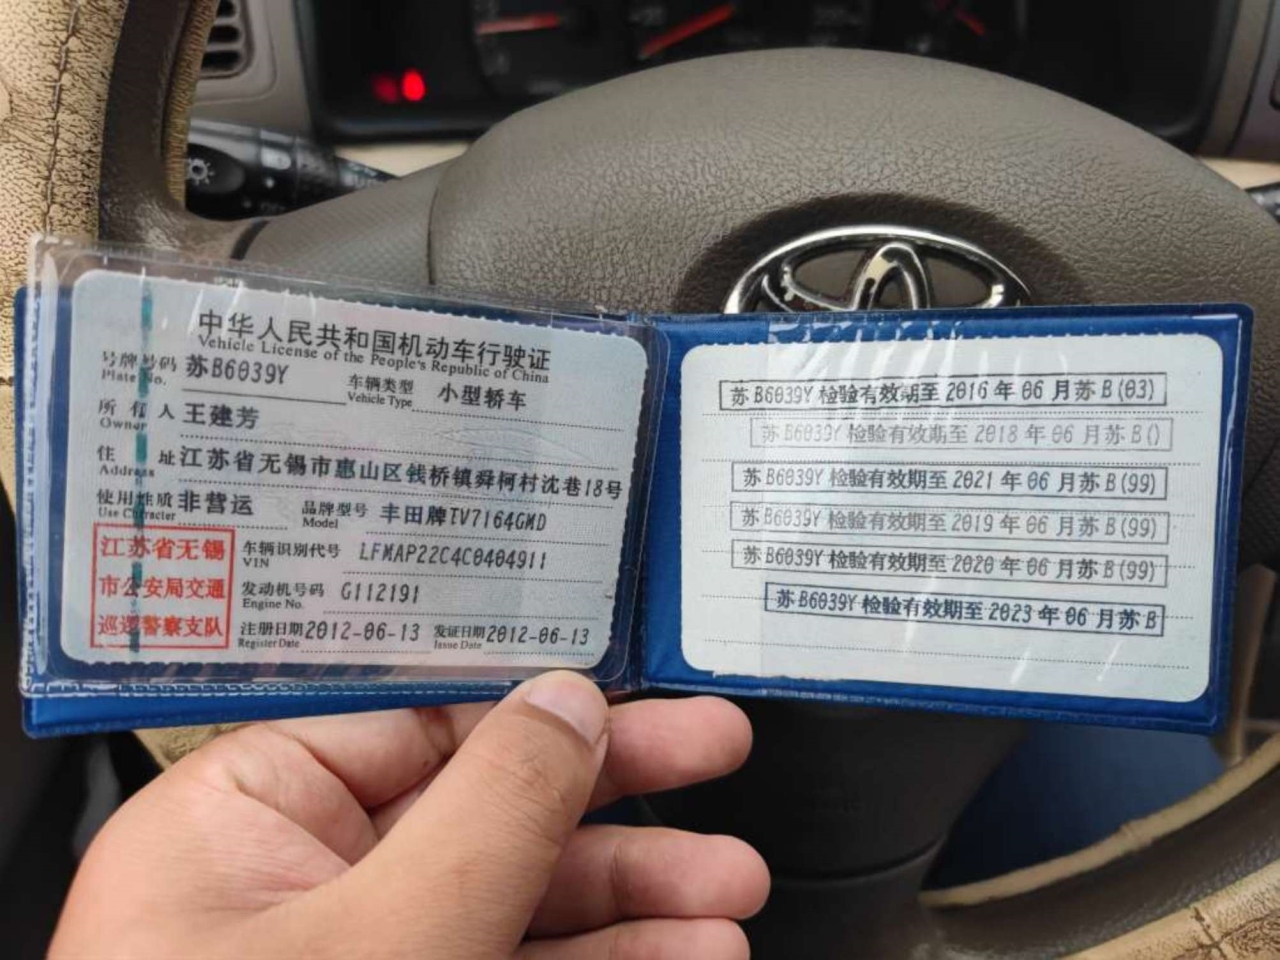 中华人民共和国机动车行驶证
Vehicle License of the People's Republic of China
号牌号码 苏B6039Y 车辆类型 小型轿车
Plate No. Vehicle Type
所有人 王建芳
Owner
住址 江苏省无锡市惠山区钱桥镇舜柯村沈巷18号
Address
使用性质 非营运 品牌型号 丰田牌TV7164GMD
Use Character Model
江苏省无锡
市公安局交通
巡逻警察支队
车辆识别代号 LFMAP22C4C0404911
VIN
发动机号码 G112191
Engine No.
注册日期 2012-06-13 发证日期 2012-06-13
Register Date Issue Date
苏B6039Y 检验有效期至 2016 年 06 月苏B(03)
苏B6039Y 检验有效期至 2018 年 06 月苏B()
苏B6039Y 检验有效期至 2021 年 06 月苏B(99)
苏B6039Y 检验有效期至 2019 年 06 月苏B(99)
苏B6039Y 检验有效期至 2020 年 06 月苏B(99)
苏B6039Y 检验有效期至 2023 年 06 月苏B